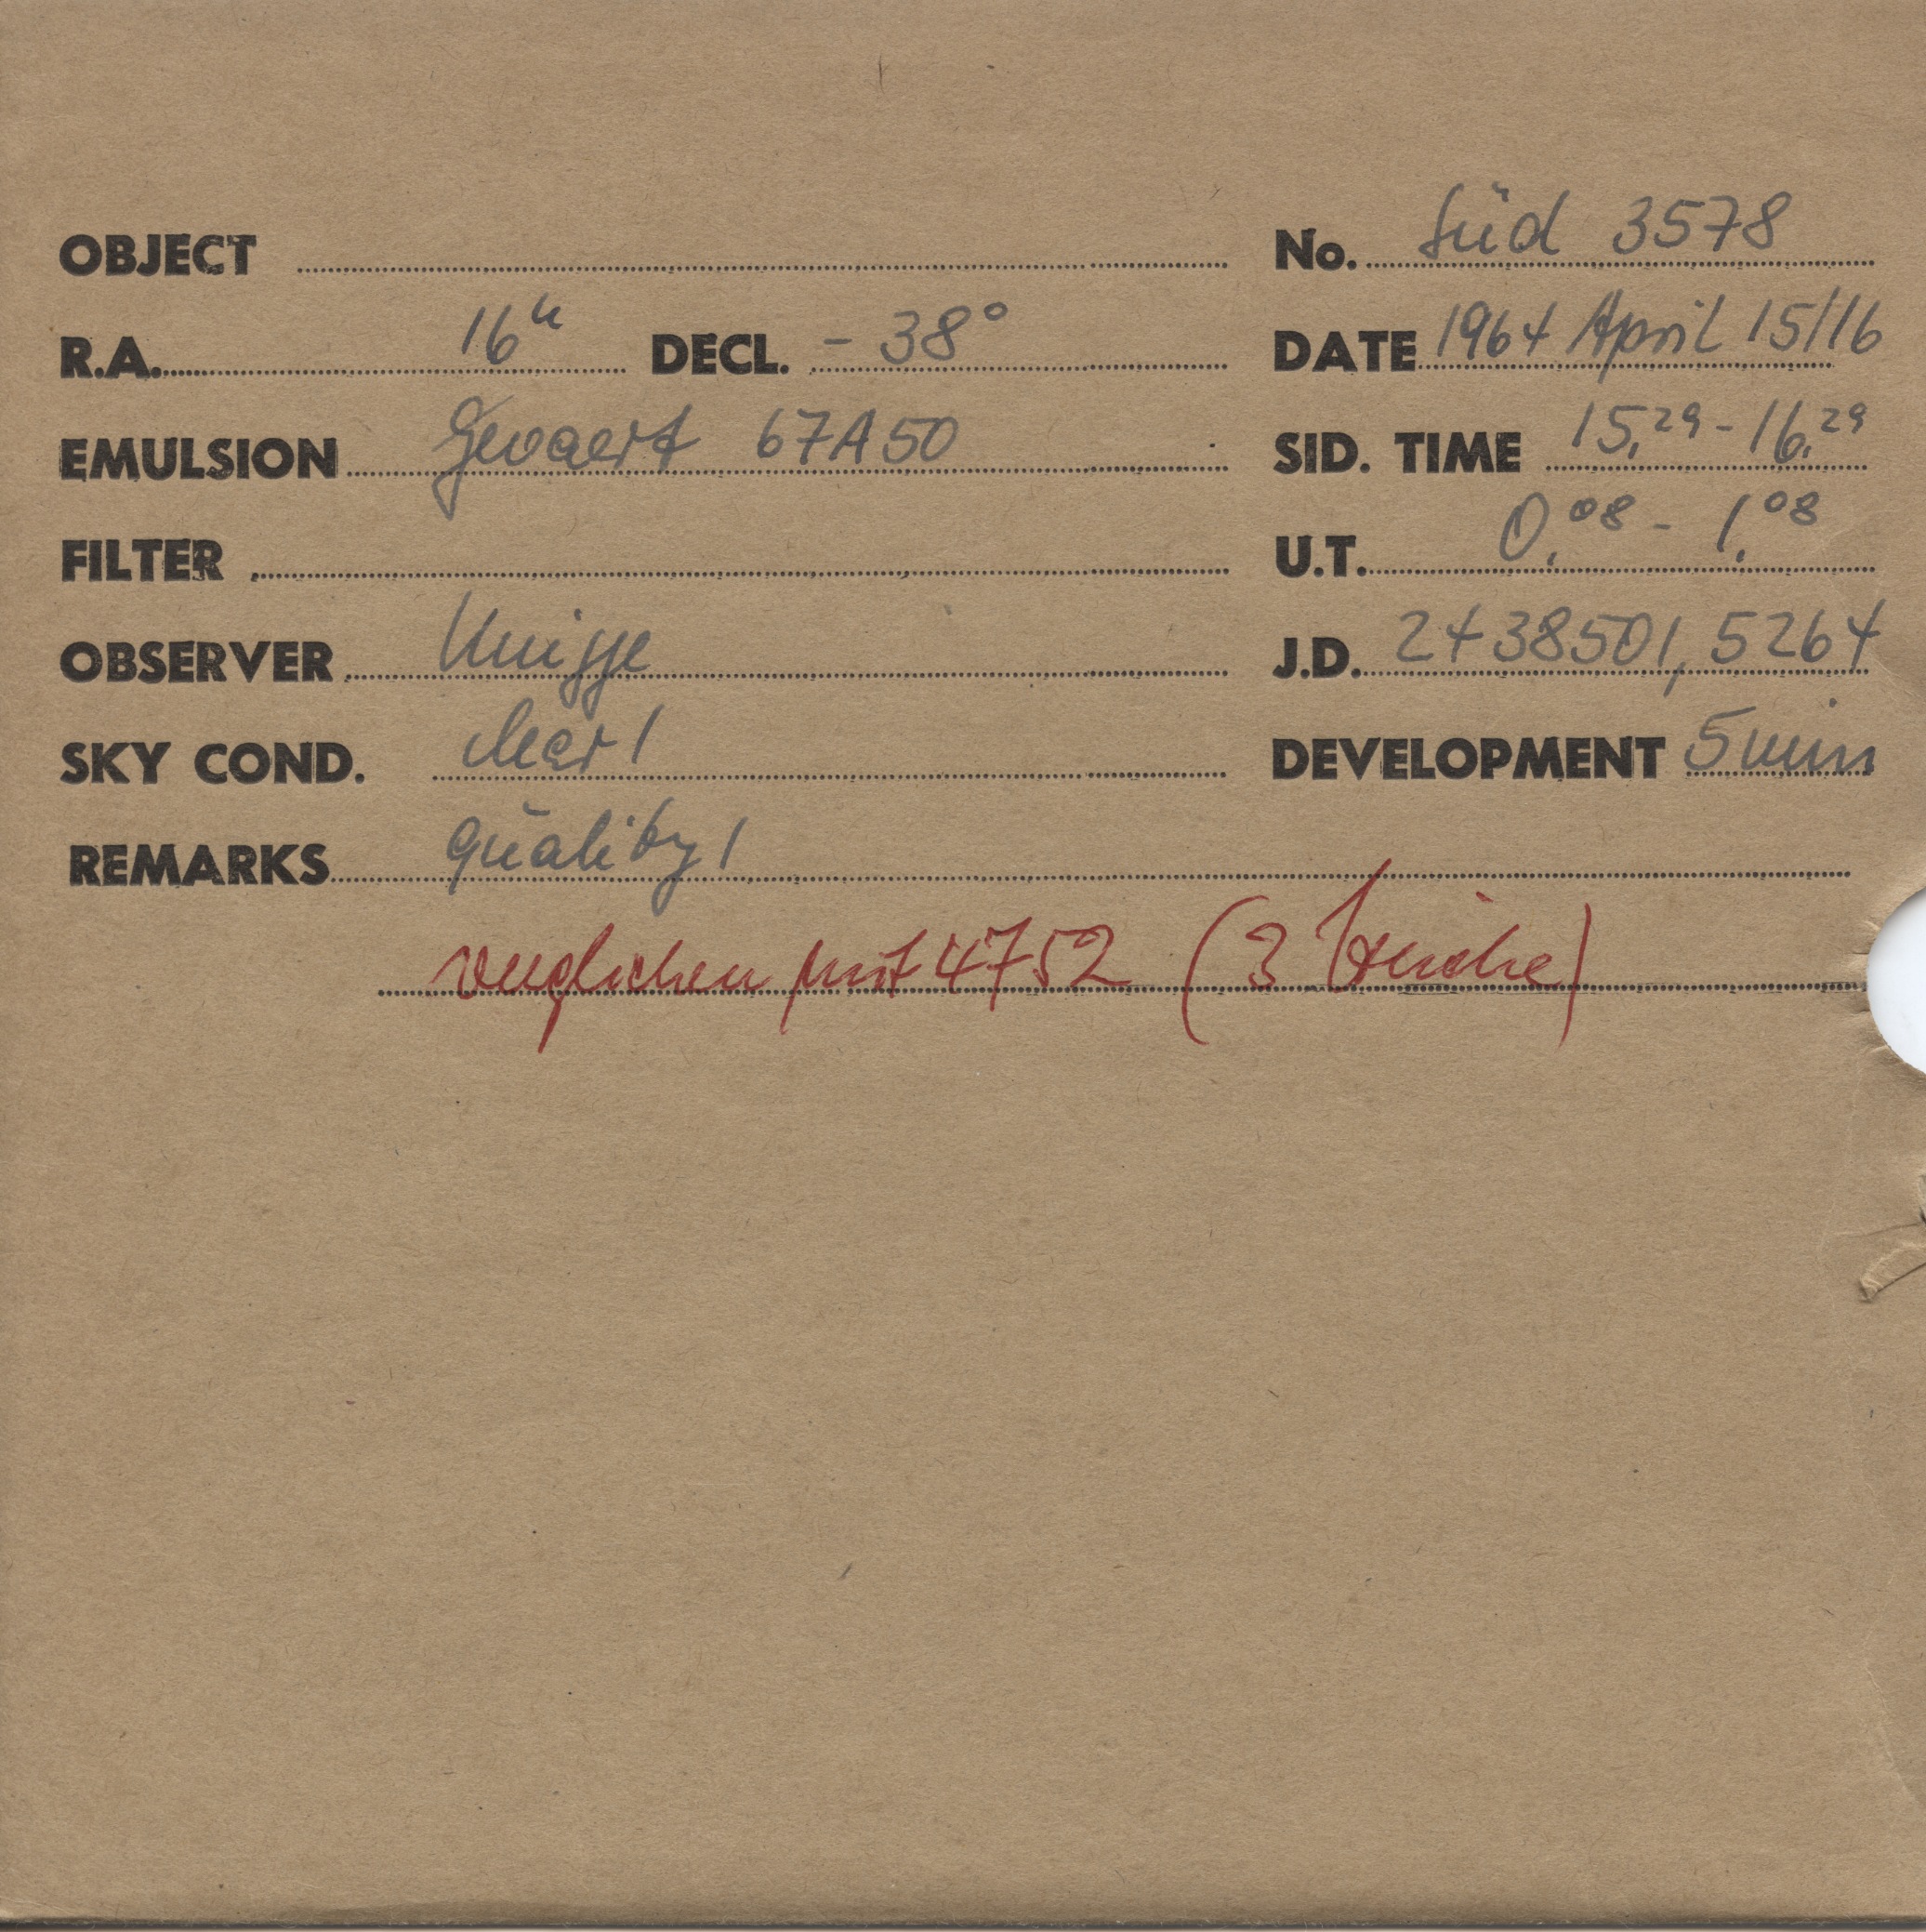 OBJECT No. Süd 3578
R.A. 16h DECL. - 38° DATE 1964 April 15/16
EMULSION Gevaert 67A50 SID. TIME 15.29 - 16.29
FILTER U.T. 0.08 - 1.08
OBSERVER Knigge J.D. 2438501,5264
SKY COND. clear 1 DEVELOPMENT 5 min
REMARKS quality 1
verglichen mit 4752 (3